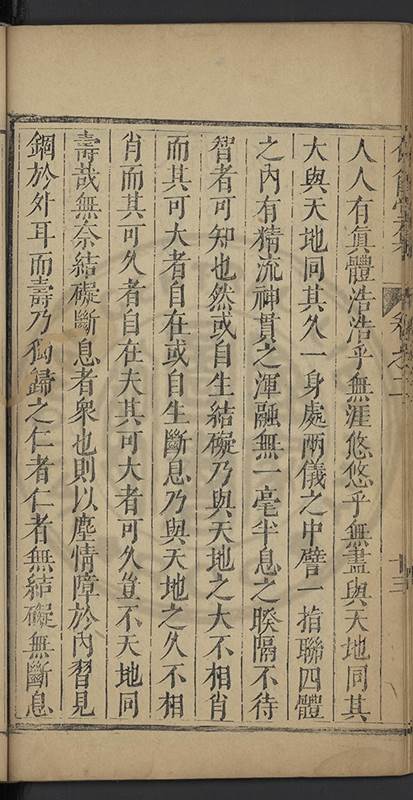 人人有眞體浩浩乎無涯悠悠乎無盡與天地同其
大與天地同其久一身處兩儀之中譬一指聯四體
之內有精流神貫之渾融無一毫半息之暌隔不待
智者可知也然或自生結礙乃與天地之大不相肖
而其可大者自在或自生斷息乃與天地之久不相
肖而其可久者自在夫其可大者可久豈不天地同
壽哉無奈結礙斷息者衆也則以塵情障於內習見
錮於外耳而壽乃獨歸之仁者仁者無結礙無斷息
卷之二
十三